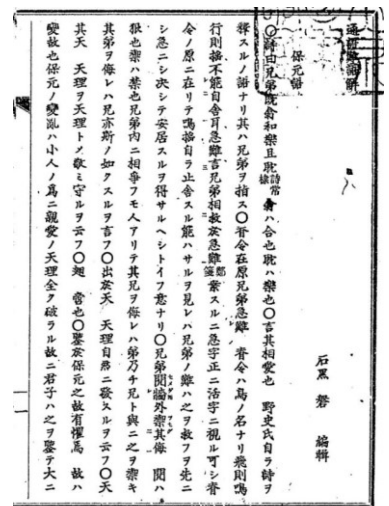 保元語
石黒磐 編輯
○詩曰兄弟既翕和樂且耽 詩常棣 翕ハ合也耽ハ樂也○言其相愛也 野史氏自ラ詩ヲ
釋スルノ語ナリ其ハ兄弟ヲ指ス○脊令在原兄弟急難 脊令ハ鳥ノ名ナリ飛則鳴
行則搖不能自舍耳急難言兄弟相救於急難 鄭箋 案スルニ急字正ニ活字ニ視ル可シ脊
令ノ原ニ在リテ鳴搖自ラ止舍スル能ハサルヲ見レハ兄弟ノ難ハ之ヲ救フヲ先ニ
シ急ニシ決シテ安居スルヲ得サルヘシトイフ意ナリ○兄弟鬩牆外禦其侮 鬩ハ
狠也禦ハ禁也兄弟内ニ相爭フモ人アリテ其兄ヲ侮レハ弟乃チ兄ト與ニ之ヲ禦キ
其弟ヲ侮レハ兄亦斯ノ如クスルヲ言フ○出於天 天理自然ニ發スルヲ云フ○天
其天 天理ヲ天理トメ敬ミ守ルヲ云フ○ 當也○鑒於保元之故有懼焉 故ハ
變故也保元ノ變亂ハ小人ノ爲ニ親愛ノ天理全ク破ラル故ニ君子ハ之ヲ鑒テ大ニ